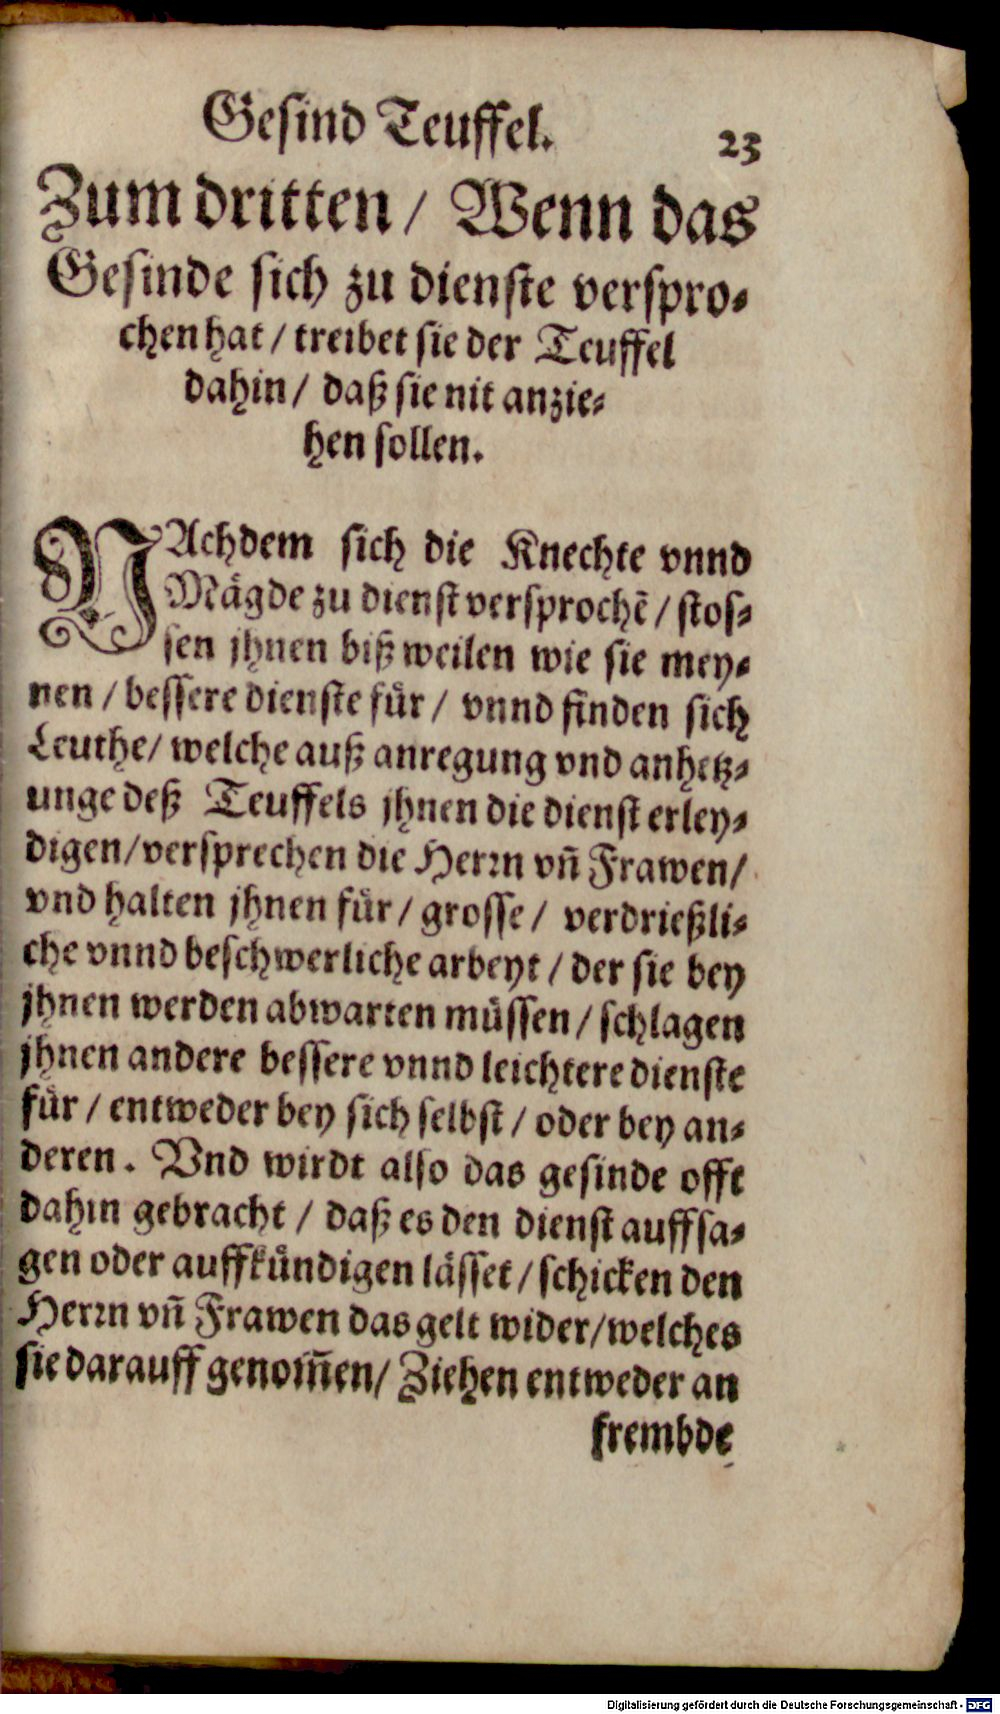 Gesind Teuffel. 23
Zum dritten / Wenn das
Gesinde sich zu dienste verspro-
chen hat / treibet sie der Teuffel
dahin / daß sie nit anzie-
hen sollen.
NAchdem sich die Knechte vnnd
Mägde zu dienst versprochē / stos-
sen jhnen biß weilen wie sie mey-
nen / bessere dienste für / vnnd finden sich
Leuthe / welche auß anregung vnd anhetz-
unge deß Teuffels jhnen die dienst erley-
digen / versprechen die Herrn vñ Frawen /
vnd halten jhnen für / grosse / verdrießli-
che vnnd beschwerliche arbeyt / der sie bey
jhnen werden abwarten müssen / schlagen
jhnen andere bessere vnnd leichtere dienste
für / entweder bey sich selbst / oder bey an-
deren. Vnd wirdt also das gesinde offt
dahin gebracht / daß es den dienst auffsa-
gen oder auffkündigen lässet / schicken den
Herrn vñ Frawen das gelt wider / welches
sie darauff genom̃en / Ziehen entweder an
frembde
Digitalisierung gefördert durch die Deutsche Forschungsgemeinschaft - DFG